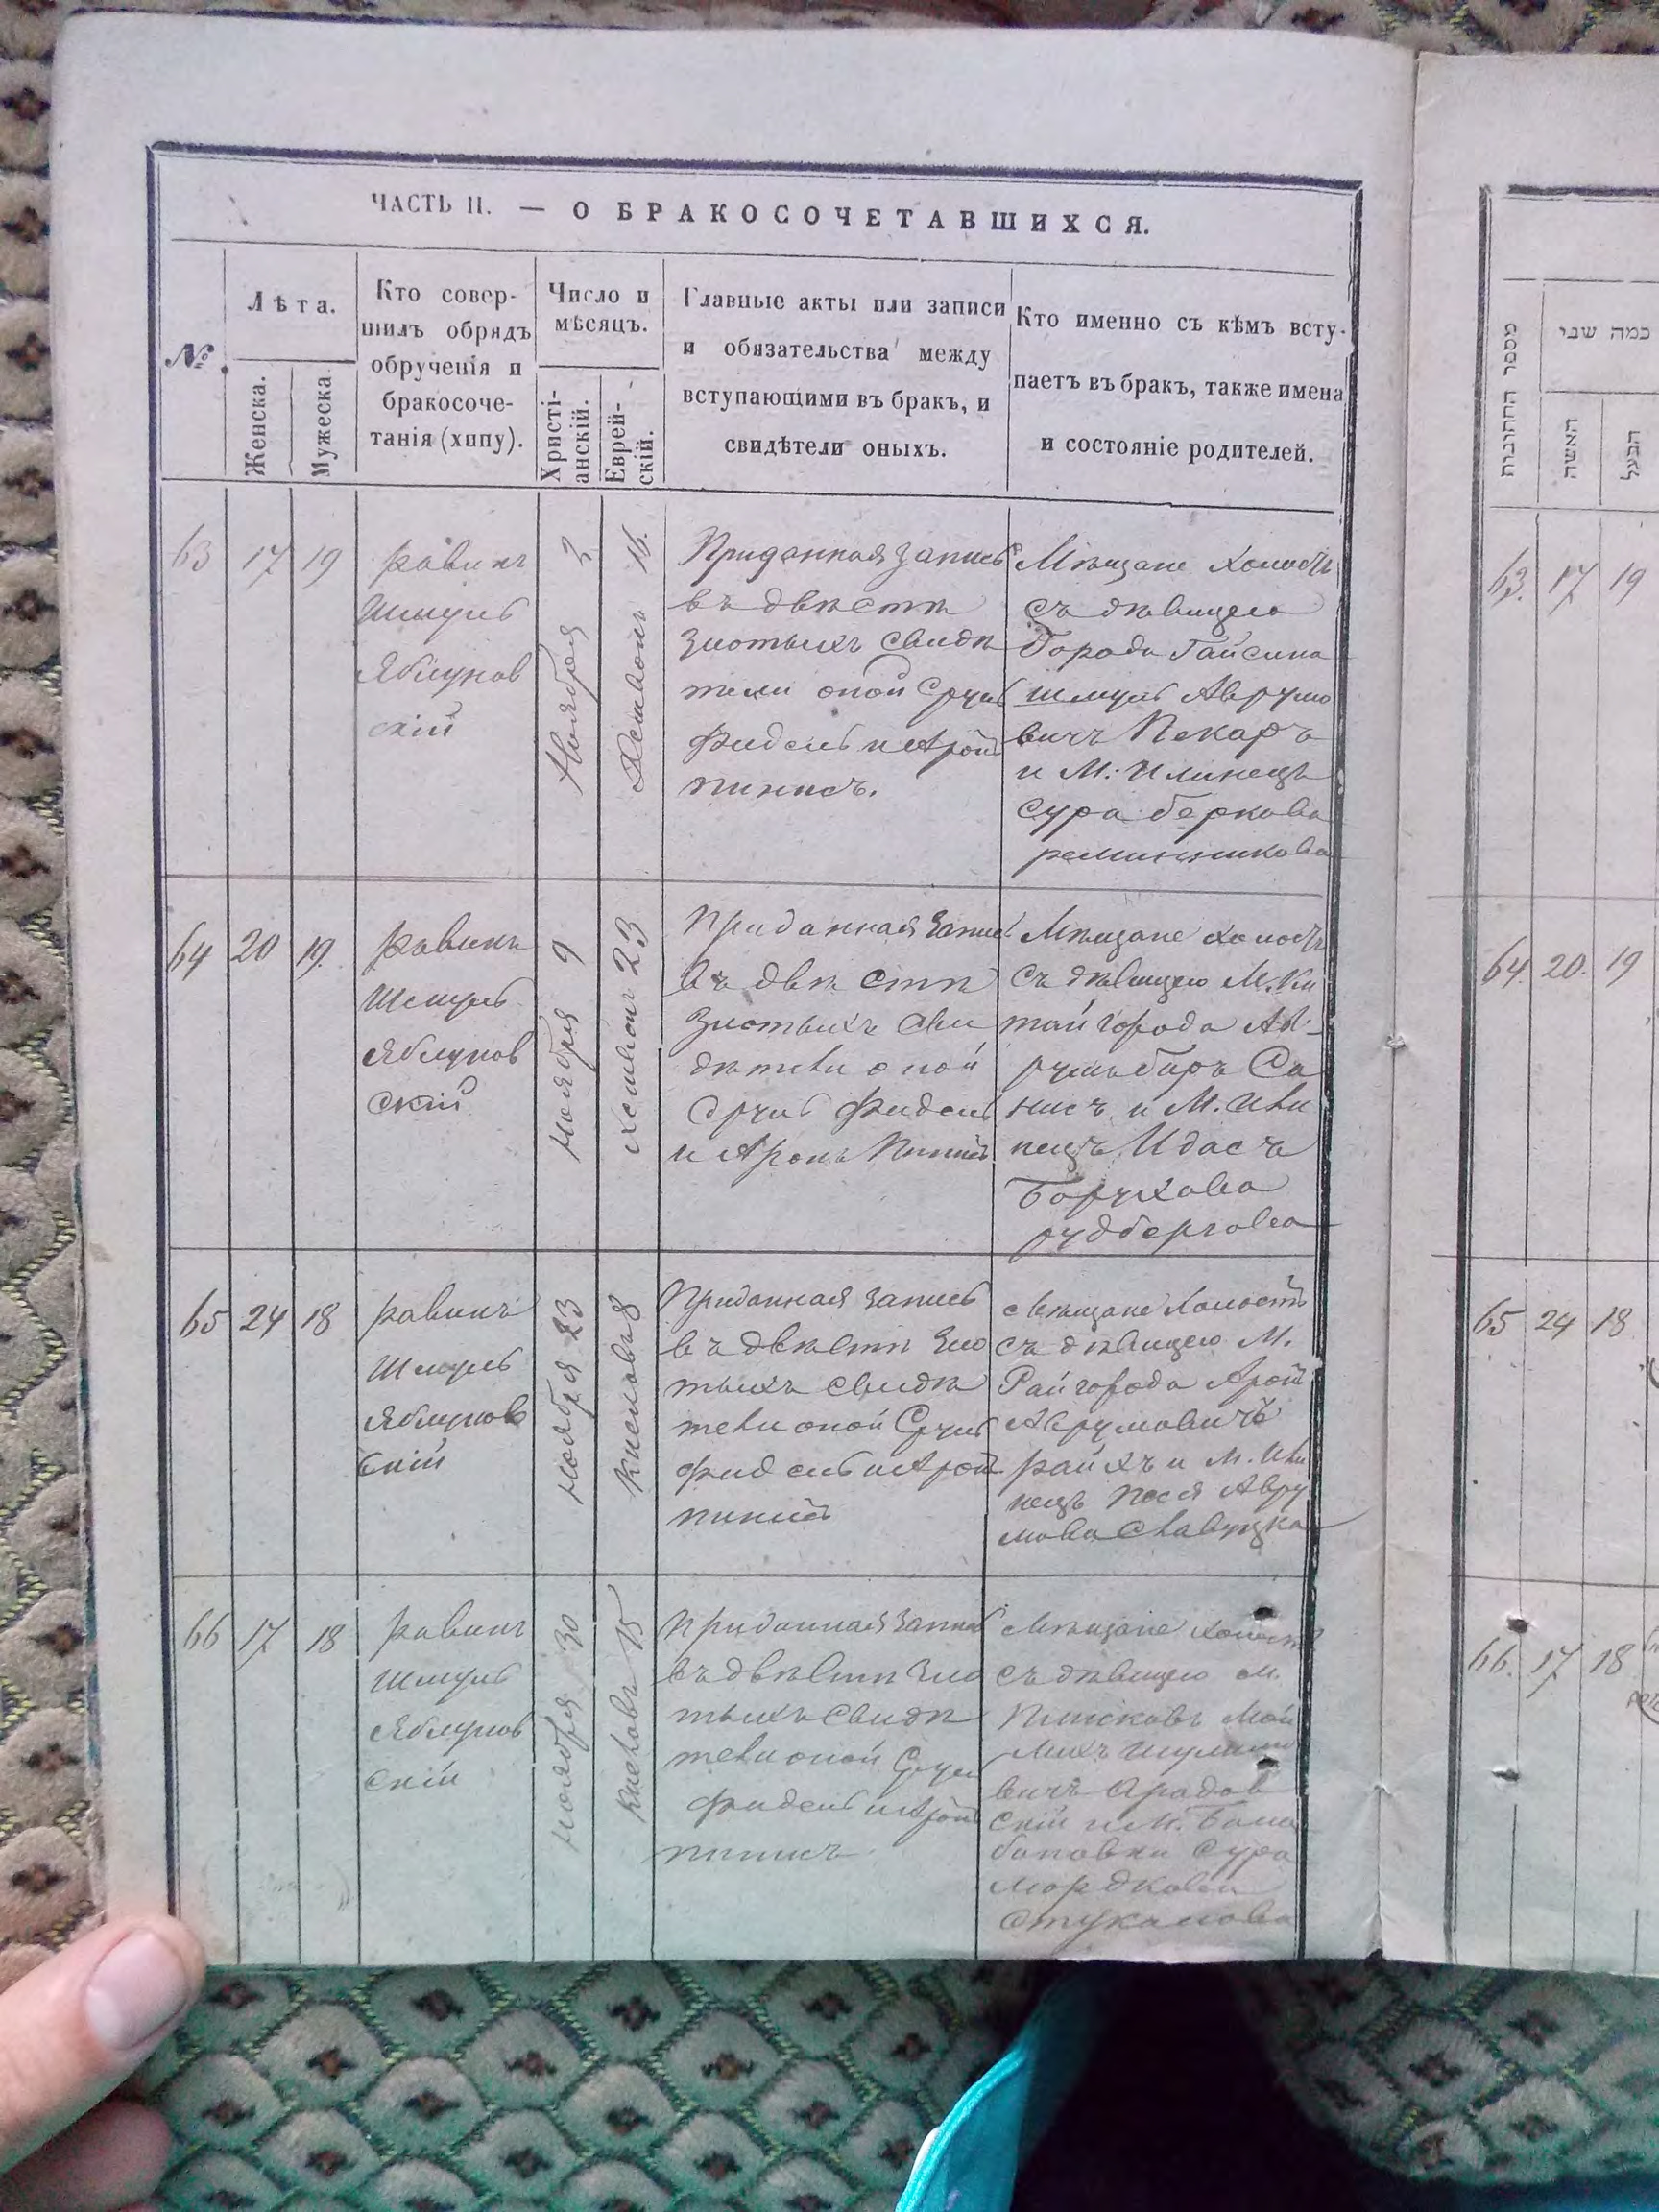 ЧАСТЬ II. — О БРАКОСОЧЕТАВШИХСЯ.
№
Лѣта.
Женска.
Мужеска.
Кто совер-
шилъ обрядъ
обрученія и
бракосоче-
танія (хипу).
Число и
мѣсяцъ.
Христі-
анскій.
Еврей-
скій.
Главные акты или записи
и обязательства между
вступающими въ бракъ, и
свидѣтели оныхъ.
Кто именно съ кѣмъ всту-
паетъ въ бракъ, также имена
и состояніе родителей.
63
17
19
равинъ
Шмуль
Яблунов
скій
Ноября 2
16.
Приданная запись
въ двѣсти
злотыхъ свидѣ
тели оной Сруль
Фидель и Аронъ
Пинисъ.
Мѣщане холостъ
съ дѣвицею
Города Гайсина
Шмуль Аврумо
вичъ Пекаръ
и М: Илинецъ
Сура беркова
64
20
19.
равинъ
Шмуль
Яблунов
скій
Ноября 9
Хешвон 23
Приданная запись
въ двѣ сти
злотыхъ сви
дѣтели оной
Сруль Фидель
и Аронъ Пинисъ
Мѣщане холостъ
съ дѣвицею М. Ки
тайгорода Ав-
румъ беръ Са
нисъ и М. Или
нецъ Идасъ
Борухова
рудбергова
65
24
18
равинъ
Шмуль
Яблунов
скій
Ноября 23
Кислов 8
Приданная запись
въ двѣсти зло
тыхъ свидѣ
тели оной Сруль
Фидель и Аронъ
Пинисъ
Мѣщане холостъ
съ дѣвицею М.
Райгорода Аронъ
Аврумовичъ
райхъ и М. Или
нецъ Песя Авру
мова Славуцка
66
17
18
равинъ
Шмуль
Яблунов
скій
Ноября 30
Кисловъ 15
Приданная запись
въ двѣсти зло
тыхъ свидѣ
тели оной Сруль
Фидель и Аронъ
Пинисъ
Мѣщане холостъ
съ дѣвицею М.
вичъ
скій и М. Бала
бановки Сура
Мордкова
Стукалова
מספר החתונות
כמה שני
האשה
הבעל
63.
17
19
64.
20.
19
65
24
18
66.
17
18